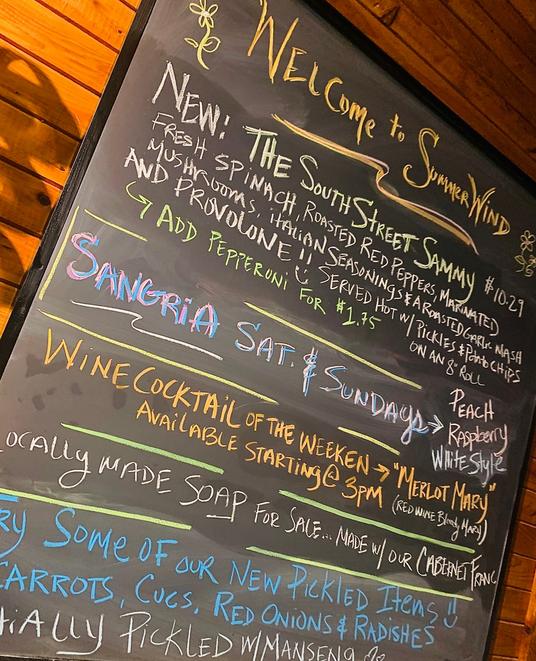 WELCOME to SUMMERWIND
NEW: THE SOUTH STREET SAMMY $10.29
FRESH SPINACH, ROASTED RED PEPPERS, MARINATED
MUSHROOMS, ITALIAN SEASONINGS & A ROASTED GARLIC MASH
AND PROVOLONE!! SERVED HOT W/ PICKLES & POTATO CHIPS
ON AN 8" ROLL
ADD PEPPERONI FOR $1.75
SANGRIA SAT. & SUNDAYS →
PEACH
Raspberry
White Style
WINE COCKTAIL OF THE WEEKEN → "MERLOT MARY"
AVAILABLE STARTING @ 3PM (RED WINE Bloody MARY)
OCALLY MADE SOAP FOR SALE... MADE W/ OUR CABERNET FRANC
RY SOME OF OUR NEW PICKLED ITEMS!!
CARROTS, CUCS, RED ONIONS & RADISHES
TIALLY PICKLED W/ MANSENG